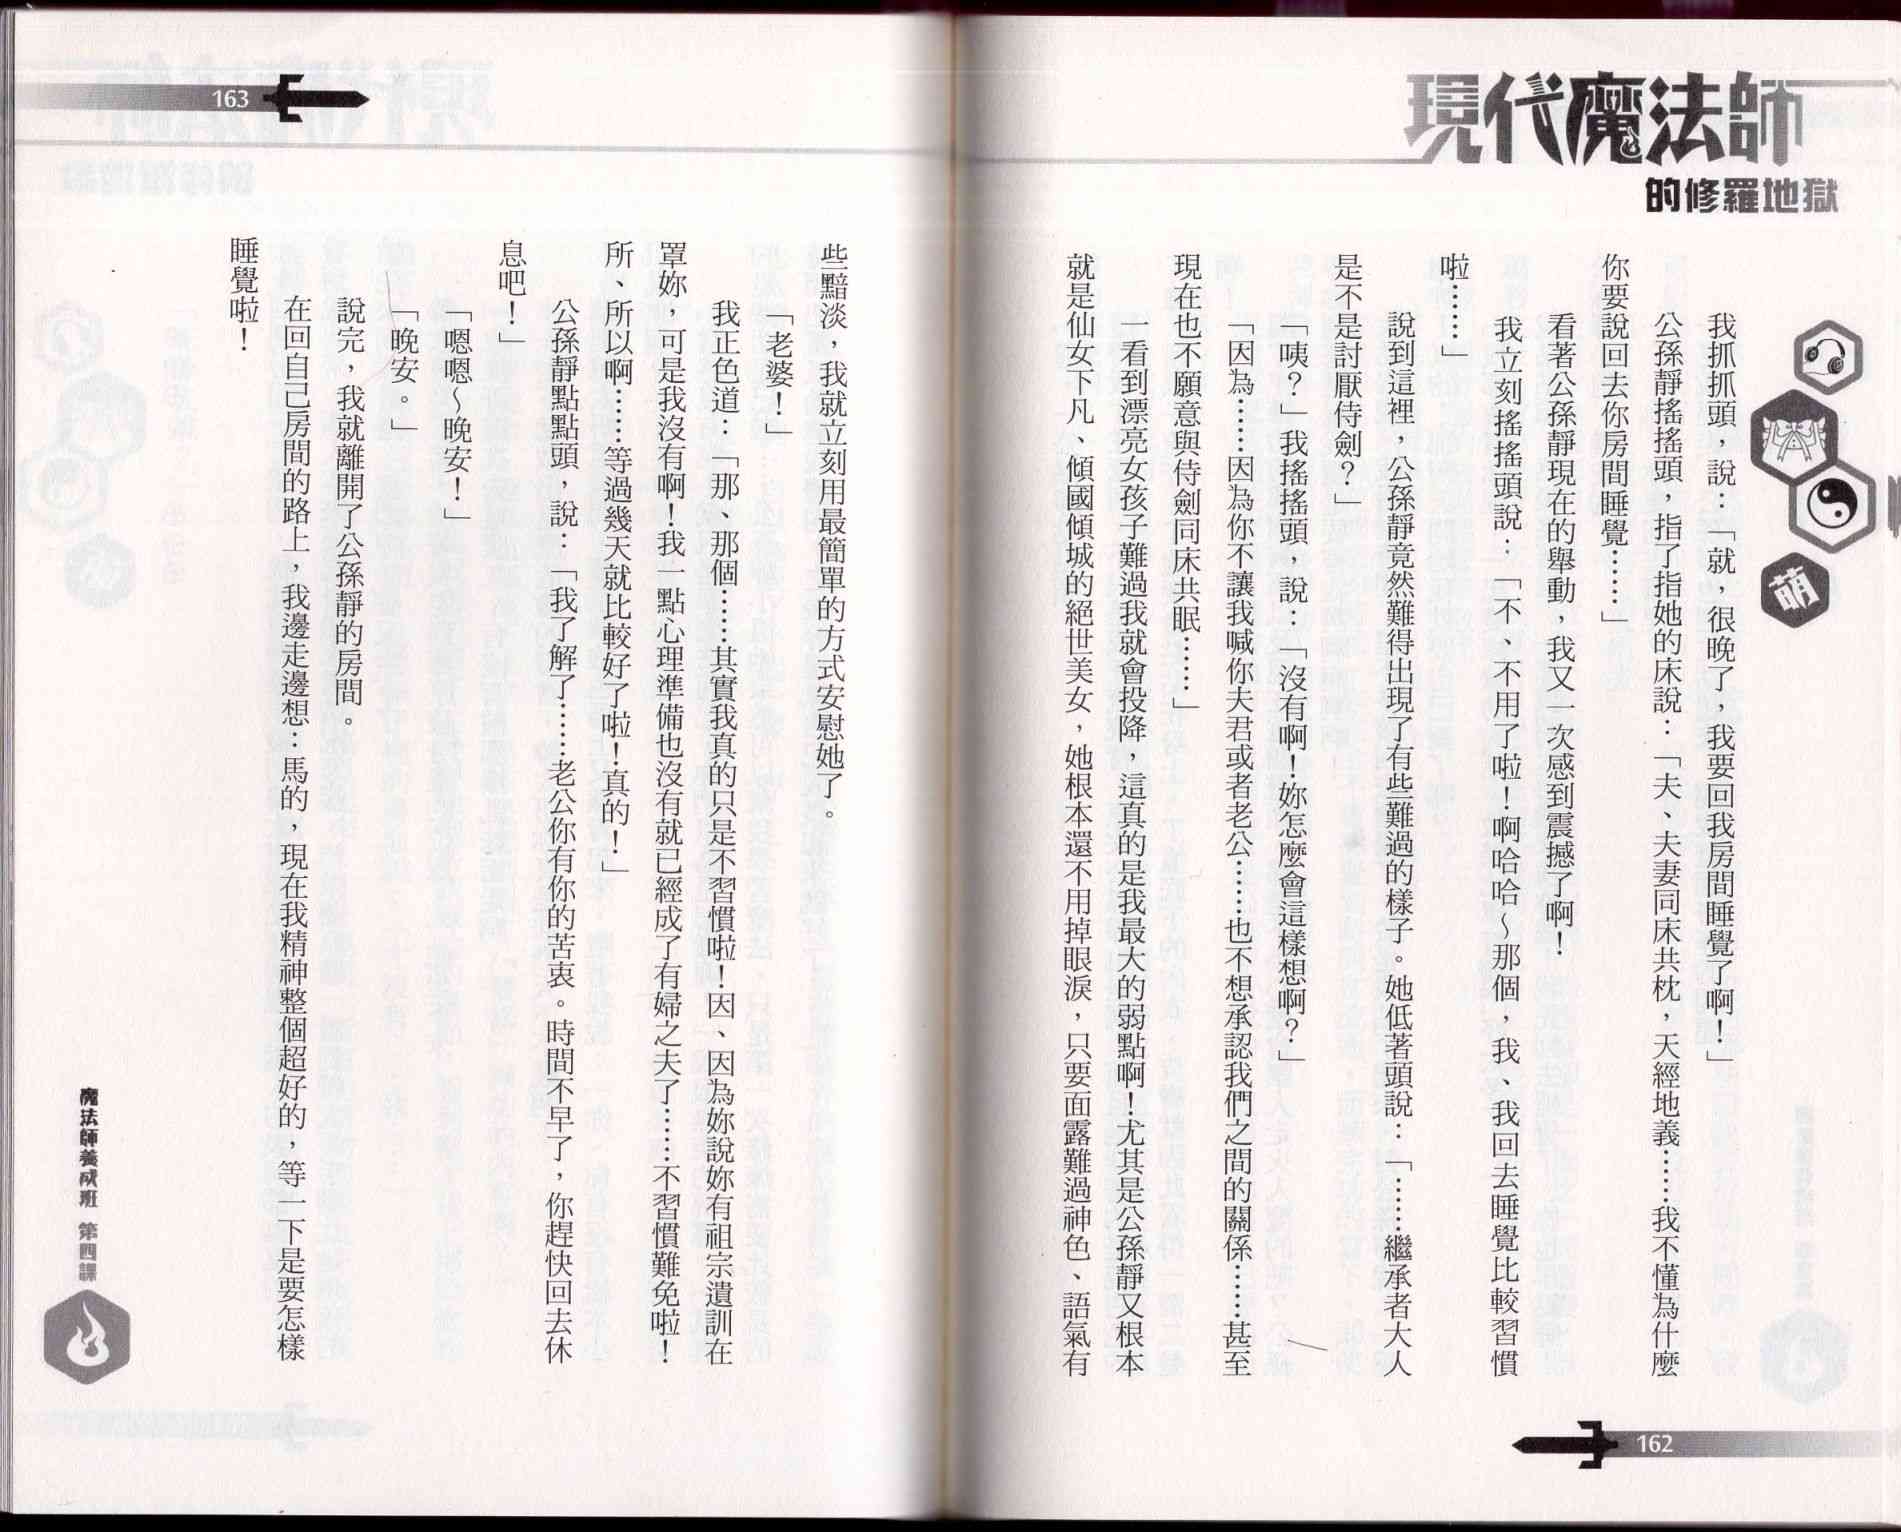 現代魔法師
的修羅地獄
萌
我抓抓頭，說：「就，很晚了，我要回我房間睡覺了啊！」
公孫靜搖搖頭，指了指她的床說：「夫、夫妻同床共枕，天經地義……我不懂為什麼
你要說回去你房間睡覺……」
看著公孫靜現在的舉動，我又一次感到震撼了啊！
我立刻搖搖頭說：「不、不用了啦！啊哈哈～那個，我、我回去睡覺比較習慣
啦……」
說到這裡，公孫靜竟然難得出現了有些難過的樣子。她低著頭說：「……繼承者大人
是不是討厭侍劍？」
「咦？」我搖搖頭，說：「沒有啊！妳怎麼會這樣想啊？」
「因為……因為你不讓我喊你夫君或者老公……也不想承認我們之間的關係……甚至
現在也不願意與侍劍同床共眠……」
一看到漂亮女孩子難過我就會投降，這真的是我最大的弱點啊！尤其是公孫靜又根本
就是仙女下凡、傾國傾城的絕世美女，她根本還不用掉眼淚，只要面露難過神色、語氣有
162
163
些黯淡，我就立刻用最簡單的方式安慰她了。
「老婆！」
我正色道：「那、那個……其實我真的只是不習慣啦！因、因為妳說妳有祖宗遺訓在
罩妳，可是我沒有啊！我一點心理準備也沒有就已經成了有婦之夫了……不習慣難免啦！
所、所以啊……等過幾天就比較好了啦！真的！」
公孫靜點點頭，說：「我了解了……老公你有你的苦衷。時間不早了，你趕快回去休
息吧！」
「嗯嗯～晚安！」
「晚安。」
說完，我就離開了公孫靜的房間。
在回自己房間的路上，我邊走邊想：馬的，現在我精神整個超好的，等一下是要怎樣
睡覺啦！
魔法師養成班 第四課